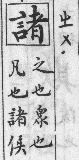 諸
ㄓㄨ.
之也衆也
凡也諸侯